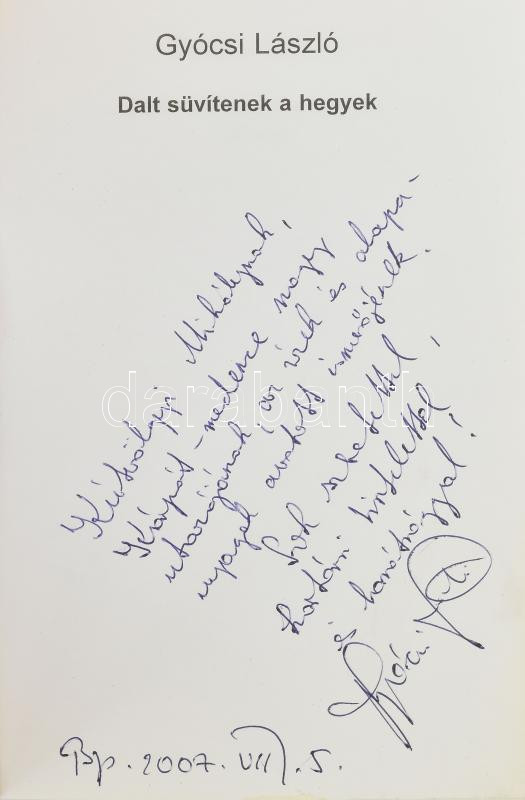 Gyócsi László
Dalt süvítenek a hegyek
Kútvölgyi Mihálynak,
Kárpát-medence nagy
utazójának, az ízek és alapa-
nyagok avatott ismerőjének.
Sok szeretettel,
kortársi tisztelettel
és barátsággal!
Gyócsi L.
Bp. 2007. VII. 5.
darabanth